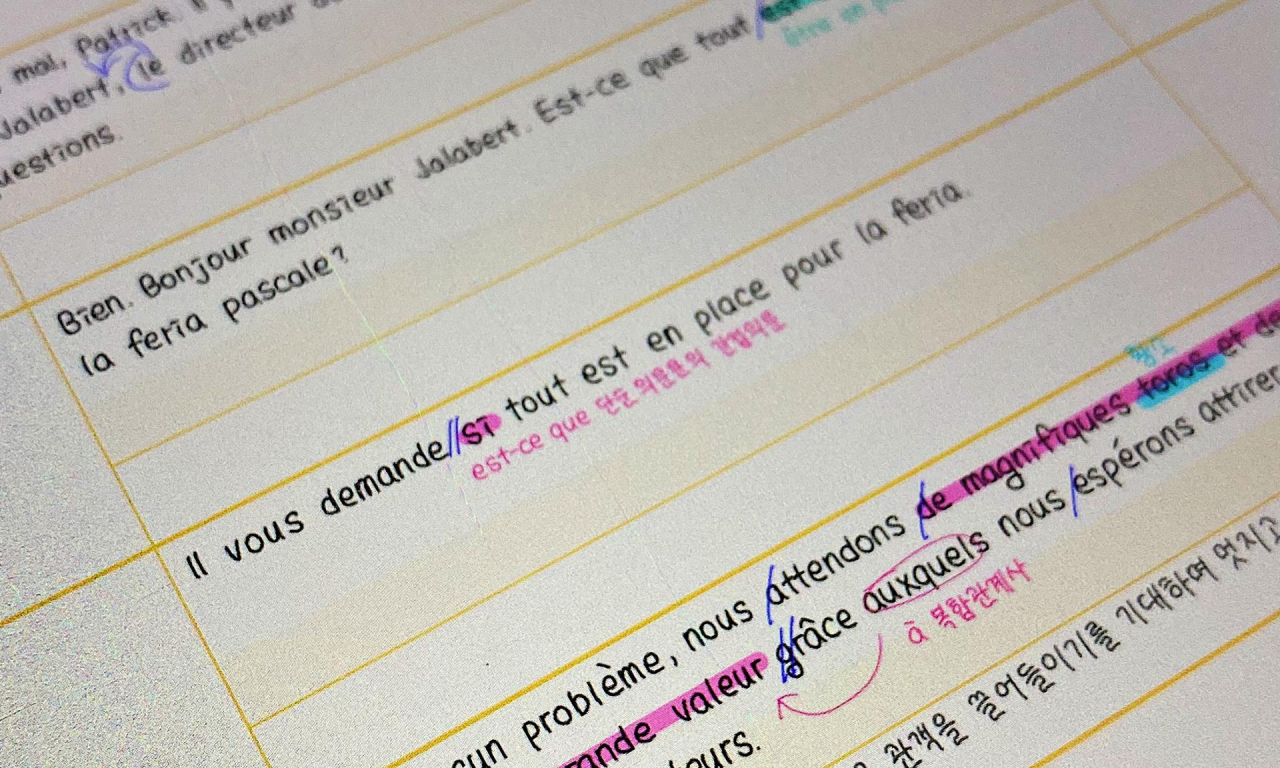 moi, Patrick. Il
Jalabert, le directeur
uestions.
Bien. Bonjour monsieur Jalabert. Est-ce que tout est
être en
la feria pascale?
Il vous demande si tout est en place pour la feria.
est-ce que 단순의문문의 간접의문
황소
cun problème, nous attendons de magnifiques toros et de
rande valeur grâce auxquels nous espérons attirer
à 복합관계사
teurs.
관객을 끌어들이기를 기대하며 멋지고